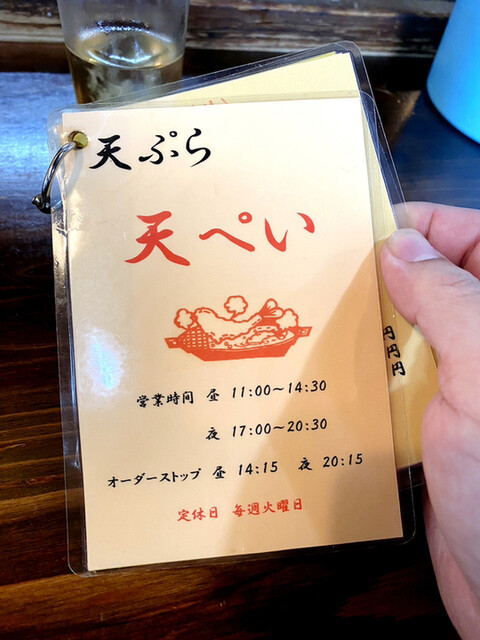 天ぷら
天ぺい
営業時間 昼 11:00～14:30
夜 17:00～20:30
オーダーストップ 昼 14:15 夜 20:15
定休日 毎週火曜日
円
円
円